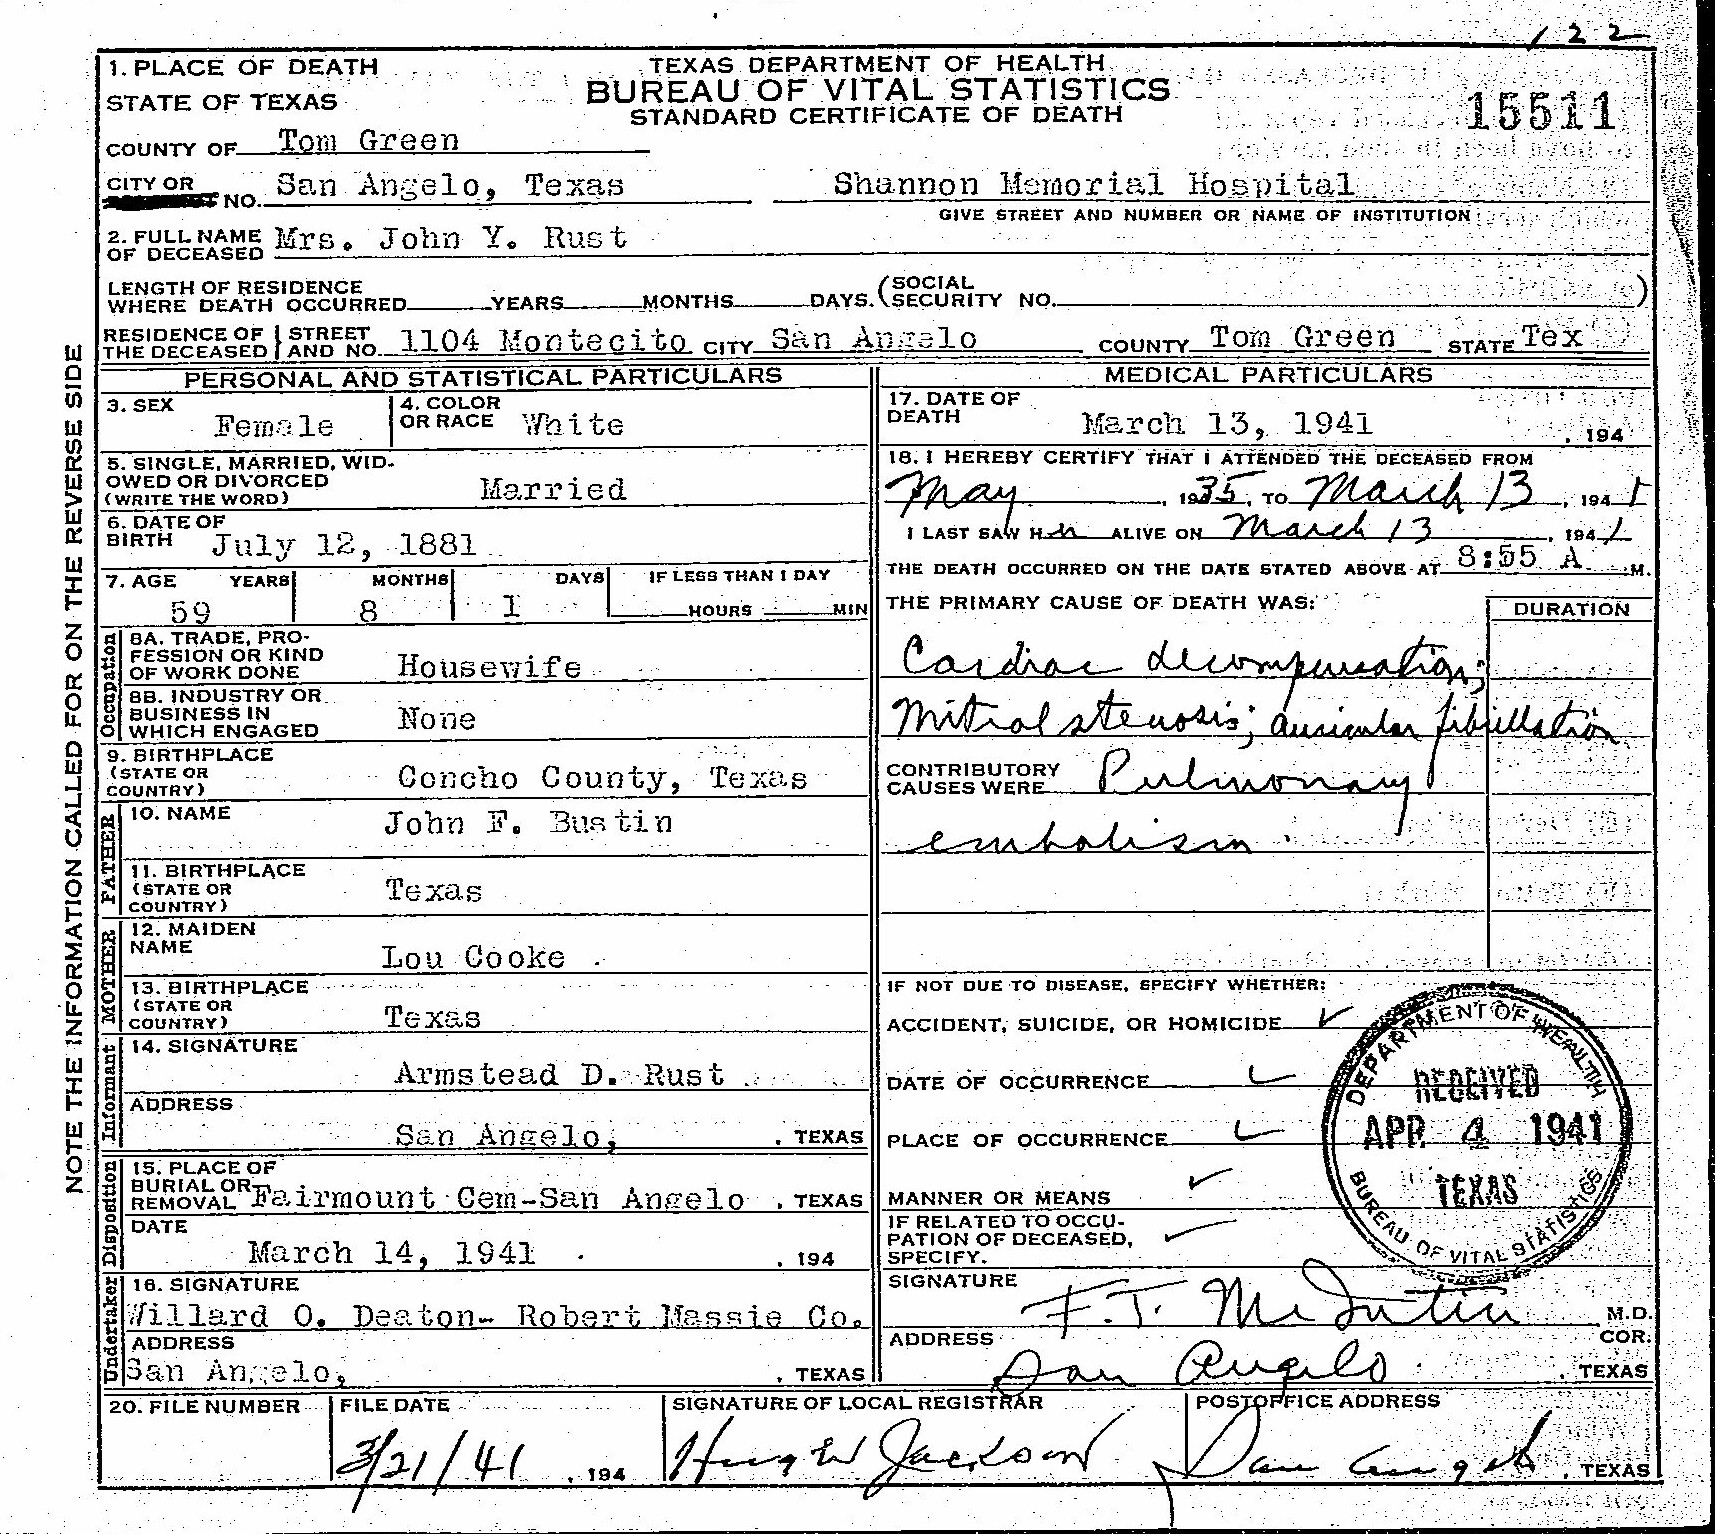 122
1. PLACE OF DEATH
STATE OF TEXAS
TEXAS DEPARTMENT OF HEALTH
BUREAU OF VITAL STATISTICS
STANDARD CERTIFICATE OF DEATH
15511
COUNTY OF Tom Green
CITY OR NO. San Angelo, Texas Shannon Memorial Hospital
GIVE STREET AND NUMBER OR NAME OF INSTITUTION
2. FULL NAME OF DECEASED Mrs. John Y. Rust
LENGTH OF RESIDENCE
WHERE DEATH OCCURRED YEARS MONTHS DAYS. (SOCIAL SECURITY NO. )
RESIDENCE OF THE DECEASED STREET AND NO. 1104 Montecito CITY San Angelo COUNTY Tom Green STATE Tex
NOTE THE INFORMATION CALLED FOR ON THE REVERSE SIDE
PERSONAL AND STATISTICAL PARTICULARS
3. SEX Female
4. COLOR OR RACE White
5. SINGLE, MARRIED, WID-
OWED OR DIVORCED
(WRITE THE WORD) Married
6. DATE OF BIRTH July 12, 1881
7. AGE YEARS MONTHS DAYS IF LESS THAN 1 DAY
59 8 1 HOURS MIN
Occupation
8A. TRADE, PRO-
FESSION OR KIND
OF WORK DONE Housewife
8B. INDUSTRY OR
BUSINESS IN
WHICH ENGAGED None
9. BIRTHPLACE
(STATE OR
COUNTRY) Concho County, Texas
FATHER
10. NAME John F. Bustin
11. BIRTHPLACE
(STATE OR
COUNTRY) Texas
MOTHER
12. MAIDEN
NAME Lou Cooke
13. BIRTHPLACE
(STATE OR
COUNTRY) Texas
Informant
14. SIGNATURE
Armstead D. Rust
ADDRESS
San Angelo, , TEXAS
Disposition
15. PLACE OF
BURIAL OR
REMOVAL Fairmount Cem-San Angelo , TEXAS
DATE
March 14, 1941 , 194
Undertaker
16. SIGNATURE
Willard O. Deaton- Robert Massie Co.
ADDRESS
San Angelo, , TEXAS
MEDICAL PARTICULARS
17. DATE OF
DEATH March 13, 1941 , 194
18. I HEREBY CERTIFY THAT I ATTENDED THE DECEASED FROM
May , 1935, TO March 13 , 1941
I LAST SAW Her ALIVE ON March 13 , 1941
THE DEATH OCCURRED ON THE DATE STATED ABOVE AT 8:55 A .M.
THE PRIMARY CAUSE OF DEATH WAS: DURATION
Cardiac decompensation;
Mitral stenosis; auricular fibrillation
CONTRIBUTORY
CAUSES WERE Pulmonary
embolism
IF NOT DUE TO DISEASE, SPECIFY WHETHER:
ACCIDENT, SUICIDE, OR HOMICIDE
DATE OF OCCURRENCE
PLACE OF OCCURRENCE
MANNER OR MEANS
IF RELATED TO OCCU-
PATION OF DECEASED,
SPECIFY.
DEPARTMENT OF HEALTH
RECEIVED
APR 4 1941
TEXAS
BUREAU OF VITAL STATISTICS
SIGNATURE F.T. McIntire M.D.
COR.
ADDRESS San Angelo , TEXAS
20. FILE NUMBER
FILE DATE
3/21/41 , 194
SIGNATURE OF LOCAL REGISTRAR
Jackson
POSTOFFICE ADDRESS
San Angelo , TEXAS